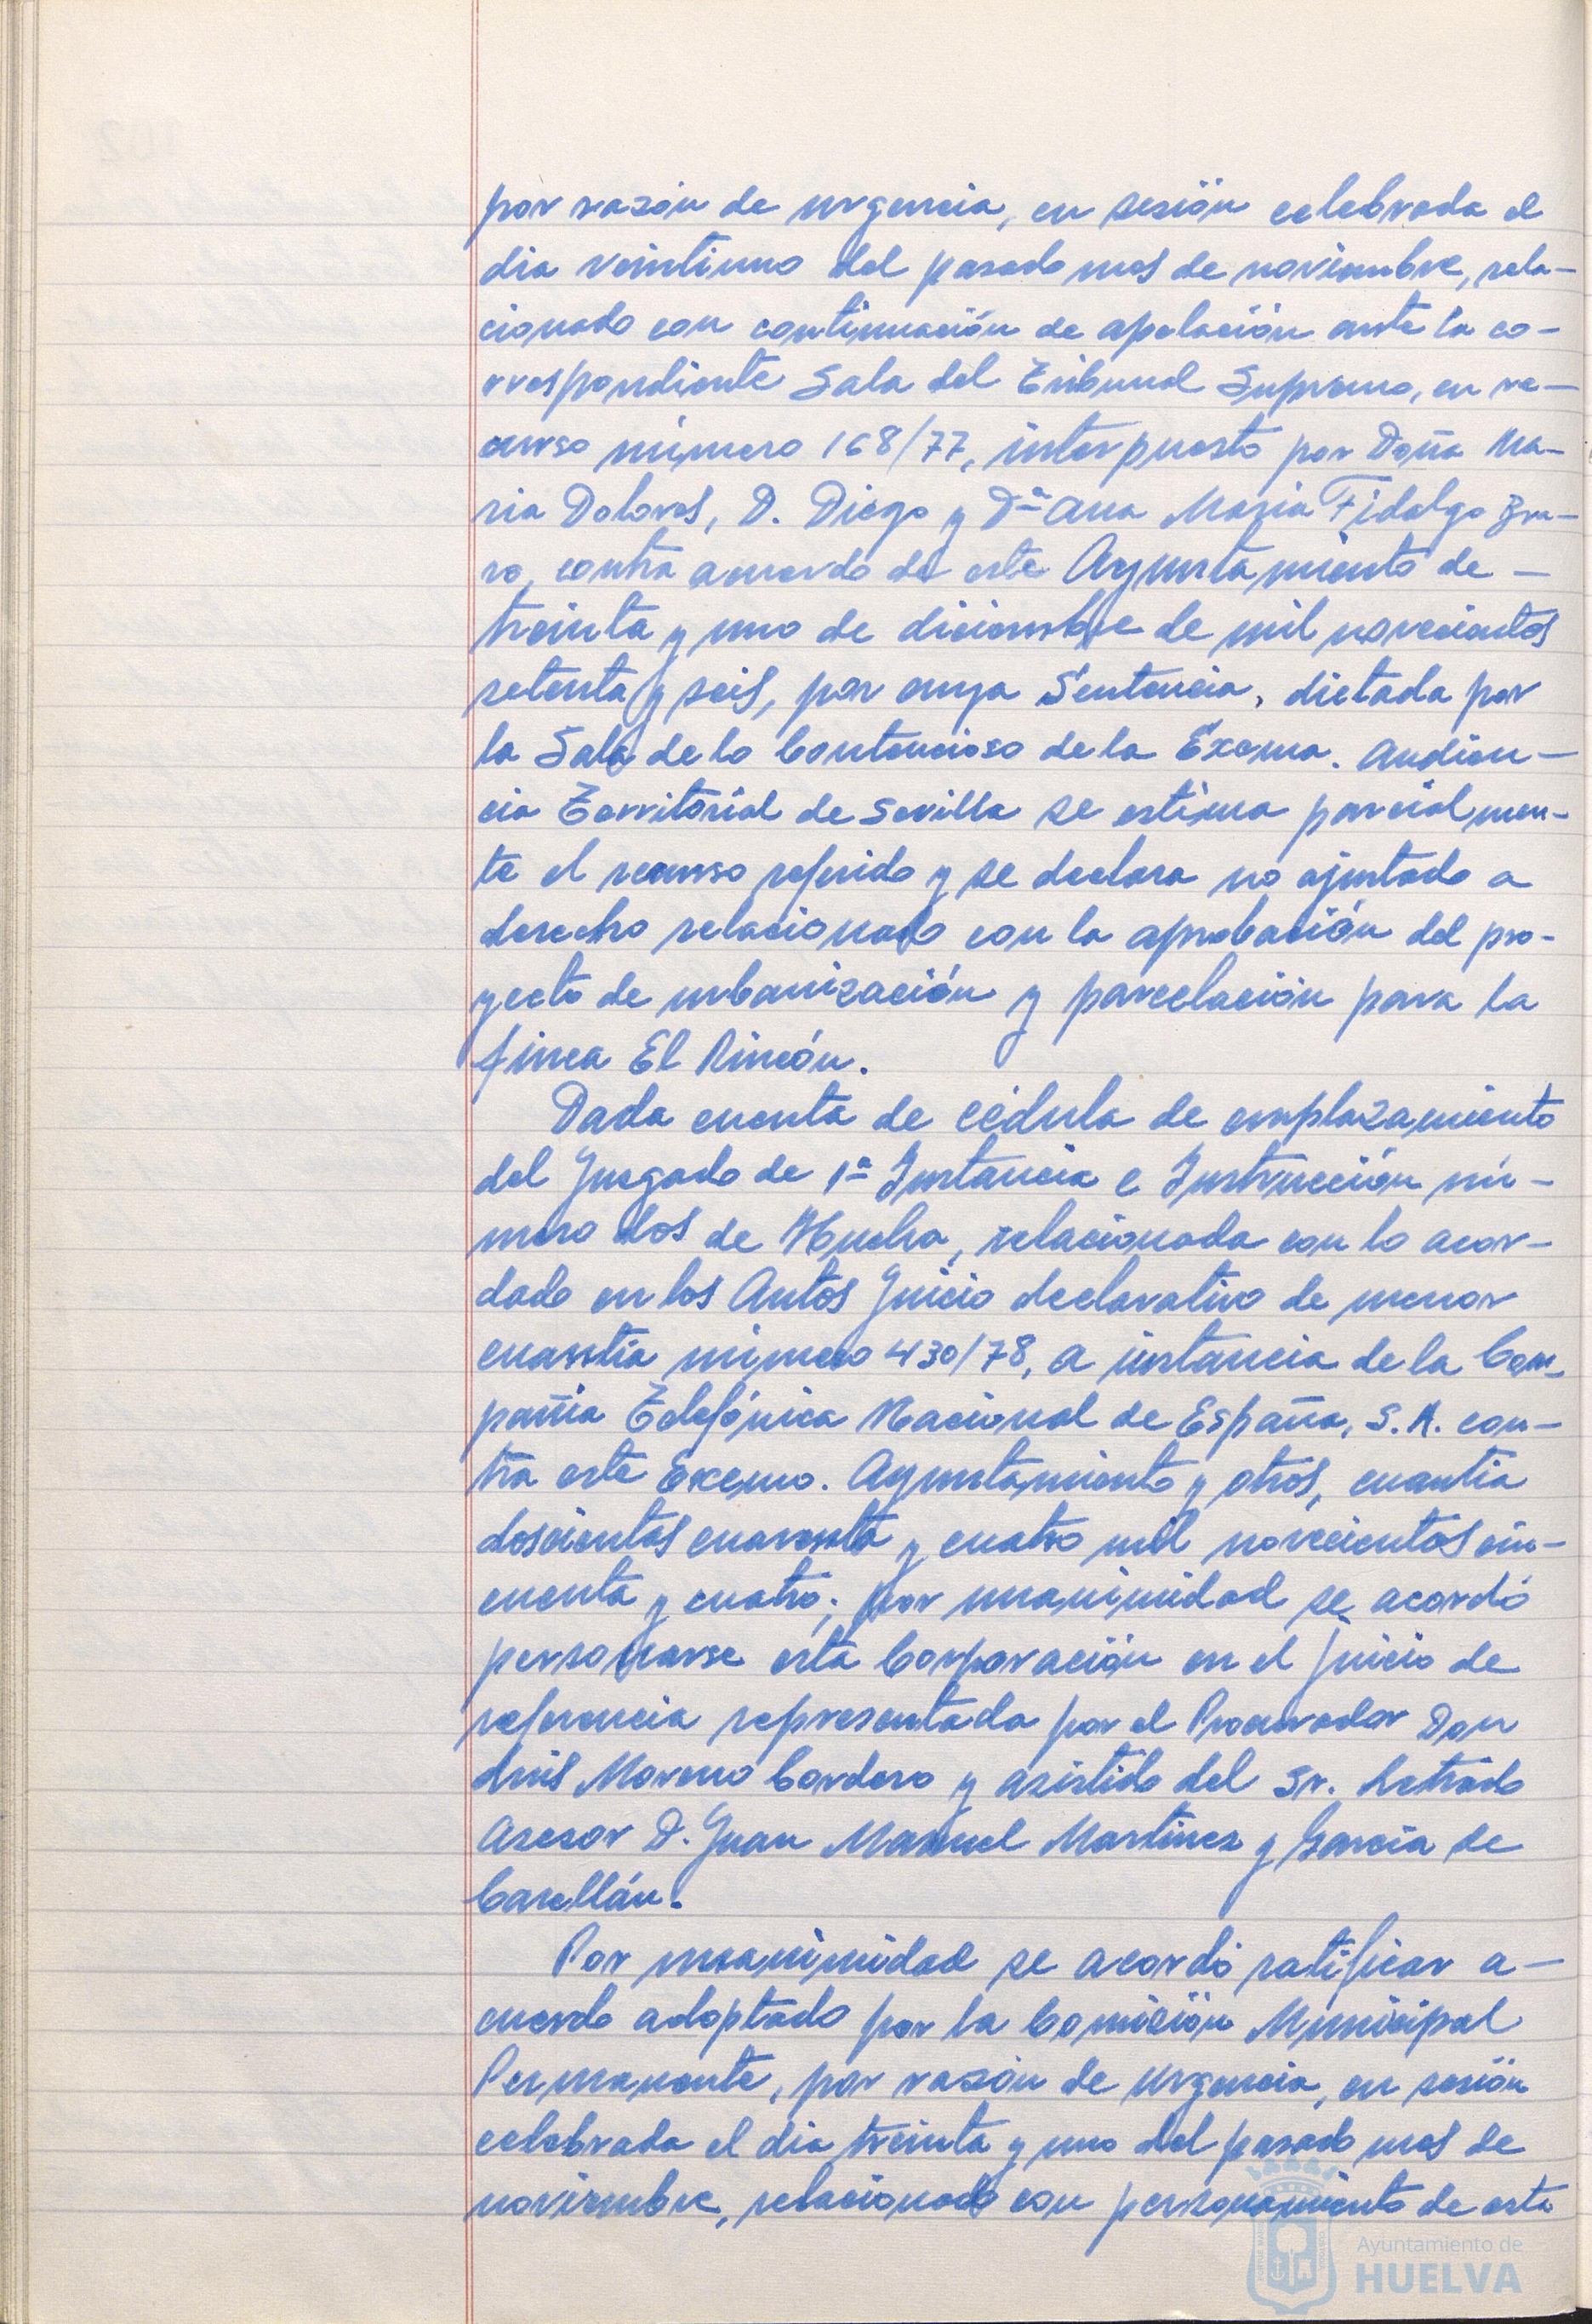 por razón de urgencia, en sesión celebrada el
dia veintiuno del pasado mes de noviembre, rela-
cionado con continuación de apelación ante la co-
rrespondiente Sala del Tribunal Supremo, en re-
curso número 168/77, interpuesto por Doña Ma-
ria Dolores, D. Diego y Dª Ana Maria Fidalgo Bra-
vo, contra acuerdo de este Ayuntamiento de -
treinta y uno de diciembre de mil novecientos
setenta y seis, por cuya Sentencia, dictada por
la Sala de lo Contencioso de la Excma. Audien-
cia Territorial de Sevilla se estima parcialmen-
te el recurso referido y se declara no ajustado a
derecho relacionado con la aprobación del pro-
yecto de urbanización y parcelación para la
finca El Rincón.
Dada cuenta de cédula de emplazamiento
del Juzgado de 1ª Instancia e Instrucción nú-
mero dos de Huelva, relacionada con lo acor-
dado en los Autos Juicio declarativo de menor
cuantía número 430/78, a instancia de la Com-
pañia Telefónica Nacional de España, S.A. con-
tra este Excmo. Ayuntamiento y otros, cuantia
doscientas cuarenta y cuatro mil novecientos cin-
cuenta y cuatro; por unanimidad se acordó
personarse esta Corporación en el juicio de
referencia representada por el Procurador Don
Luis Moreno Cordero y asistido del Sr. Letrado
Asesor D. Juan Manuel Martinez y Garcia de
Casellán.
Por unanimidad se acordó ratificar a-
cuerdo adoptado por la Comisión Municipal
Permanente, por razón de urgencia, en sesión
celebrada el dia treinta y uno del pasado mes de
noviembre, relacionado con personamiento de esta
Ayuntamiento de
HUELVA